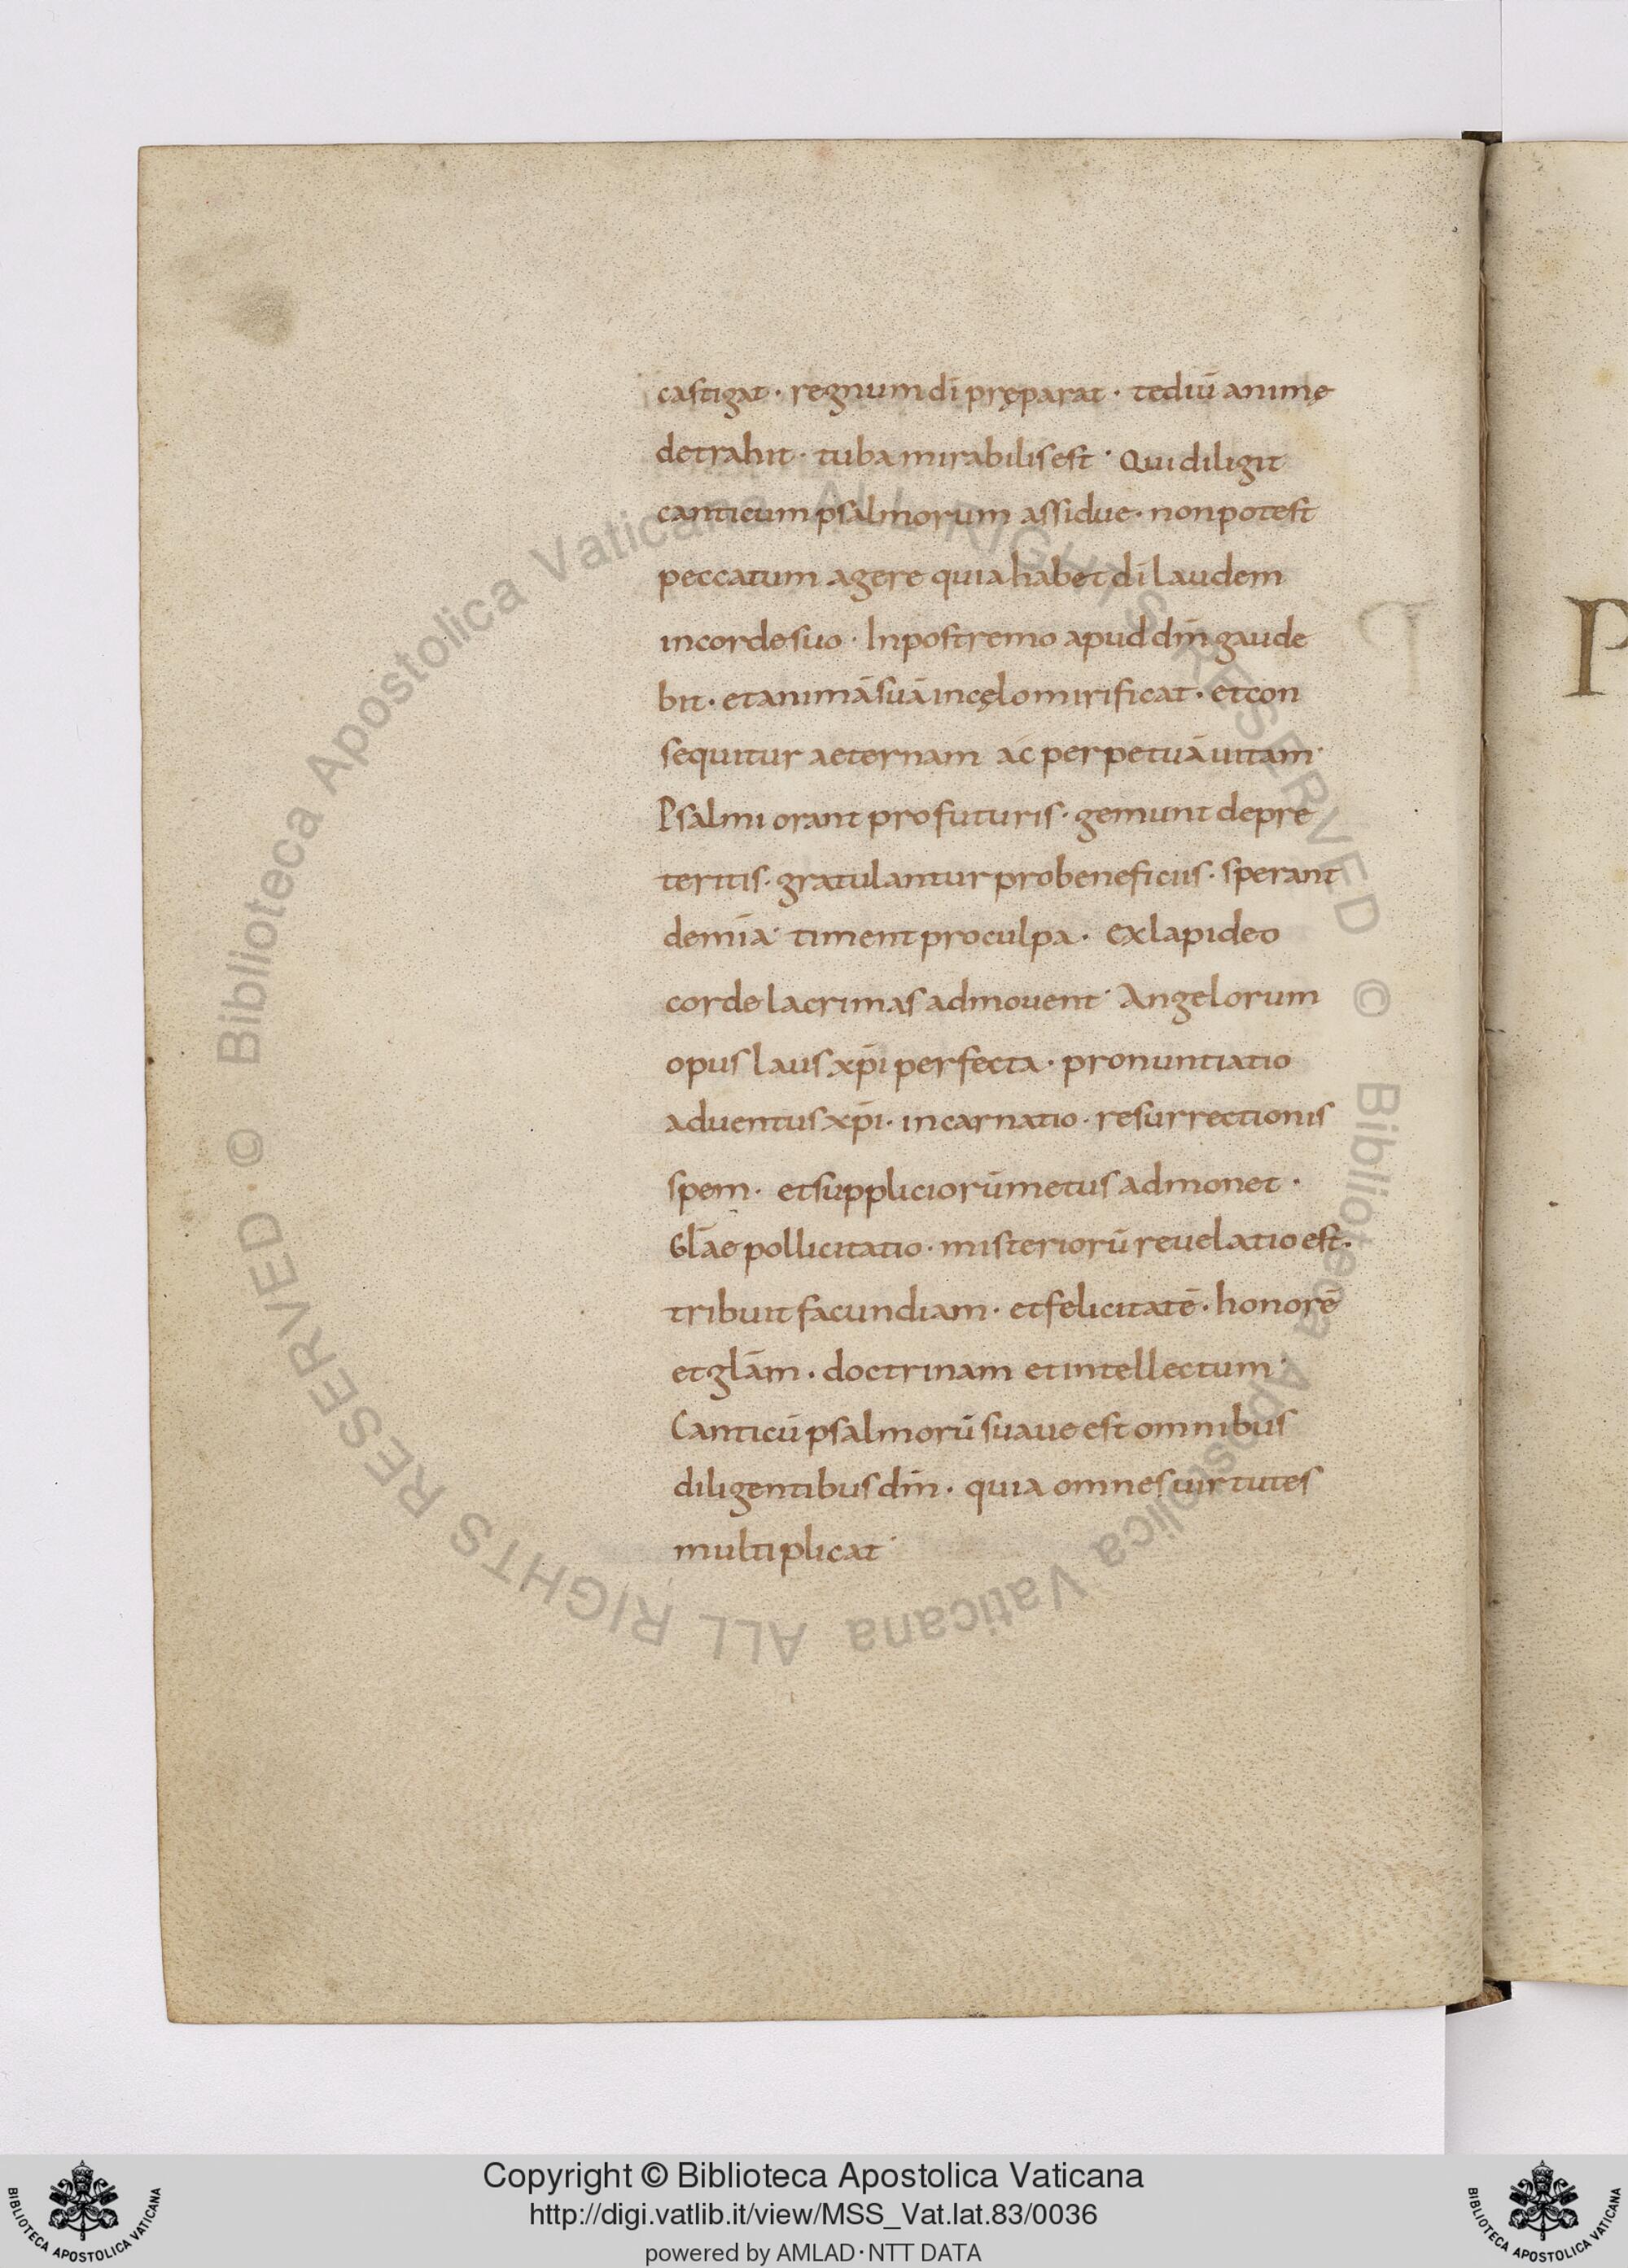 castigat · regnum dī pręparat · tediū animę
detrahit · tuba mirabilis est · Qui diligit
canticum psalmorum assidue · non potest
peccatum agere quia habet dī laudem
in corde suo · In postremo apud dm̄ gaude
bit · et animā suā in cęlo mirificat · et con
sequitur aeternam ac perpetuā uitam ·
Psalmi orant pro futuris · gemunt de pre
teritis · gratulantur pro beneficiis · sperant
de mīa · timent pro culpa · ex lapideo
corde lacrimas admouent · Angelorum
opus laus xp̄i perfecta · pronuntiatio
aduentus xp̄i · incarnatio · resurrectionis
spem · et suppliciorū metus admonet ·
Glāe pollicitatio · misteriorū reuelatio est ·
tribuit facundiam · et felicitatē · honorē
et glām · doctrinam et intellectum ·
Canticū psalmorū suaue est omnibus
diligentibus dm̄ · quia omnes uirtutes
multiplicat ·
P
© Biblioteca Apostolica Vaticana ALL RIGHTS RESERVED · © Biblioteca Apostolica Vaticana ALL RIGHTS RESERVED ·
Copyright © Biblioteca Apostolica Vaticana
http://digi.vatlib.it/view/MSS_Vat.lat.83/0036
powered by AMLAD · NTT DATA
BIBLIOTECA APOSTOLICA VATICANA
BIBLIOTECA APOSTOLICA VATICANA